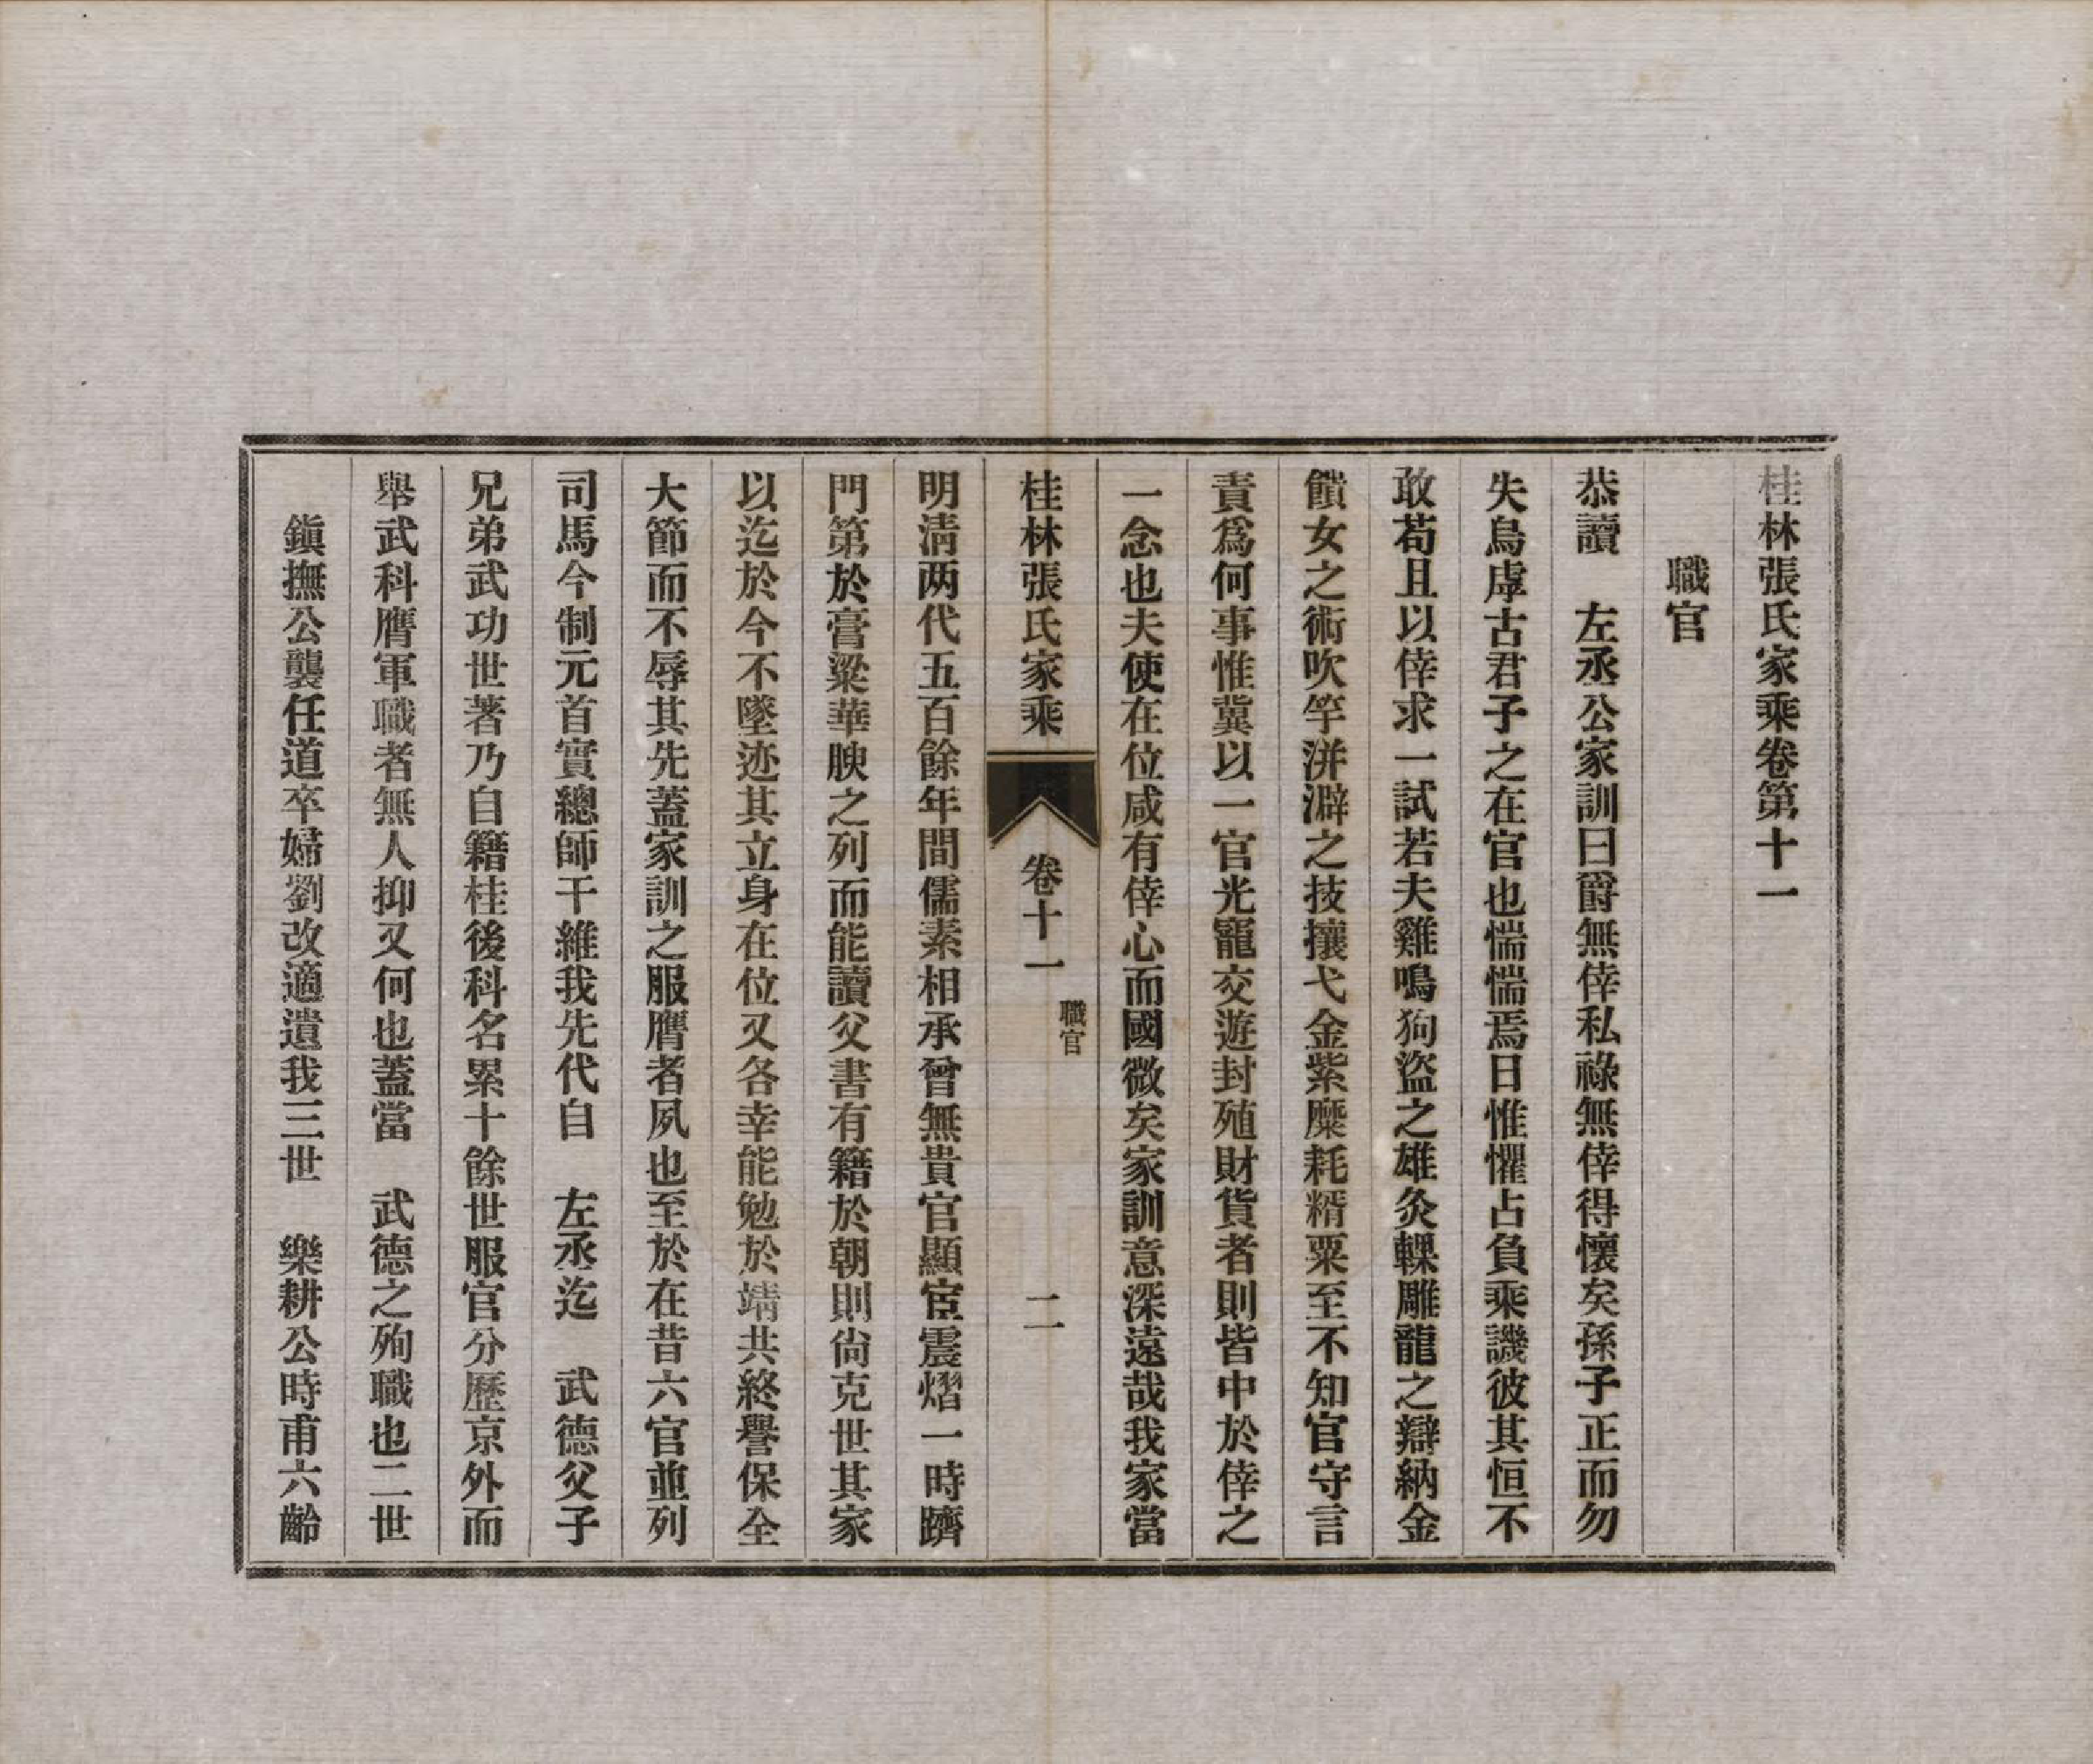 桂林張氏家乘卷第十一
職官
恭讀　左丞公家訓曰爵無倖私祿無倖得懷矣孫子正而勿
失烏虖古君子之在官也惴惴焉日惟懼占負乘譏彼其恒不
敢苟且以倖求一試若夫雞鳴狗盜之雄灸輠雕龍之辯納金
饋女之術吹竽洴澼之技攘弋金紫糜耗糈粟至不知官守言
責爲何事惟冀以一官光寵交遊封殖財貨者則皆中於倖之
一念也夫使在位咸有倖心而國微矣家訓意深遠哉我家當
桂林張氏家乘　卷十一　職官　二
明淸两代五百餘年間儒素相承曾無貴官顯宦震熠一時躋
門第於膏粱華腴之列而能讀父書有籍於朝則尙克世其家
以迄於今不墜迹其立身在位又各幸能勉於靖共終譽保全
大節而不辱其先蓋家訓之服膺者夙也至於在昔六官並列
司馬今制元首實總師干維我先代自　左丞迄　武德父子
兄弟武功世著乃自籍桂後科名累十餘世服官分歷京外而
舉武科膺軍職者無人抑又何也蓋當　武德之殉職也二世
鎭撫公襲任道卒婦劉改適遺我三世　樂耕公時甫六齡